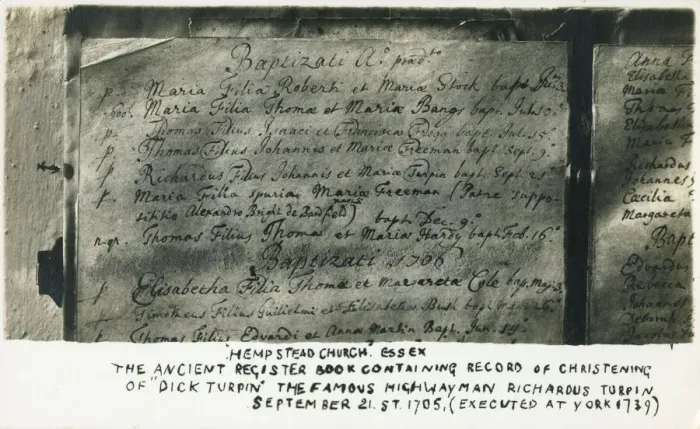 Baptizati Aº præd.to
p. Maria Filia Roberti et Mariæ Stock bapt.
Maria Filia Thomæ et Mariæ Bangs bapt. Jul. 10.
p. Thomas Filius Isaaci et Franciscæ Frogg bapt. Jul. 15º
p. Thomas Filius Johannis et Mariæ Freeman bapt. Sept. 9.º
p. Richardus Filius Johannis et Mariæ Turpin bapt. Sept. 21
p. Maria Filia spuria Mariæ Freeman (Patre suppo-
sititio Alexandro Bright de Bardfield) bapt. Dec. 9.º
n-gr. Thomas Filius Thomæ et Mariæ Hardy bapt. Feb. 16.º
Baptizati 1706
p Elisabetha Filia Thomæ et Margaretæ Cole bap. Maj.
p Timotheus Filius Guilielmi et Elisabethæ Bush bapt.
p Thomas Filius Edvardi et Annæ Martin Bapt. Jun. 19.º
Anna
Elisabetha
Maria F
Thomas
Elisabetha
Maria F
Richardus
Johannes
Cæcilia
Margareta
Bapt
Edvardus
Rebecca
Johannes
Deborah
HEMPSTEAD CHURCH. ESSEX
THE ANCIENT REGISTER BOOK CONTAINING RECORD OF CHRISTENING
OF "DICK TURPIN" THE FAMOUS HIGHWAYMAN RICHARDUS TURPIN
SEPTEMBER 21.ST. 1705, (EXECUTED AT YORK 1739)